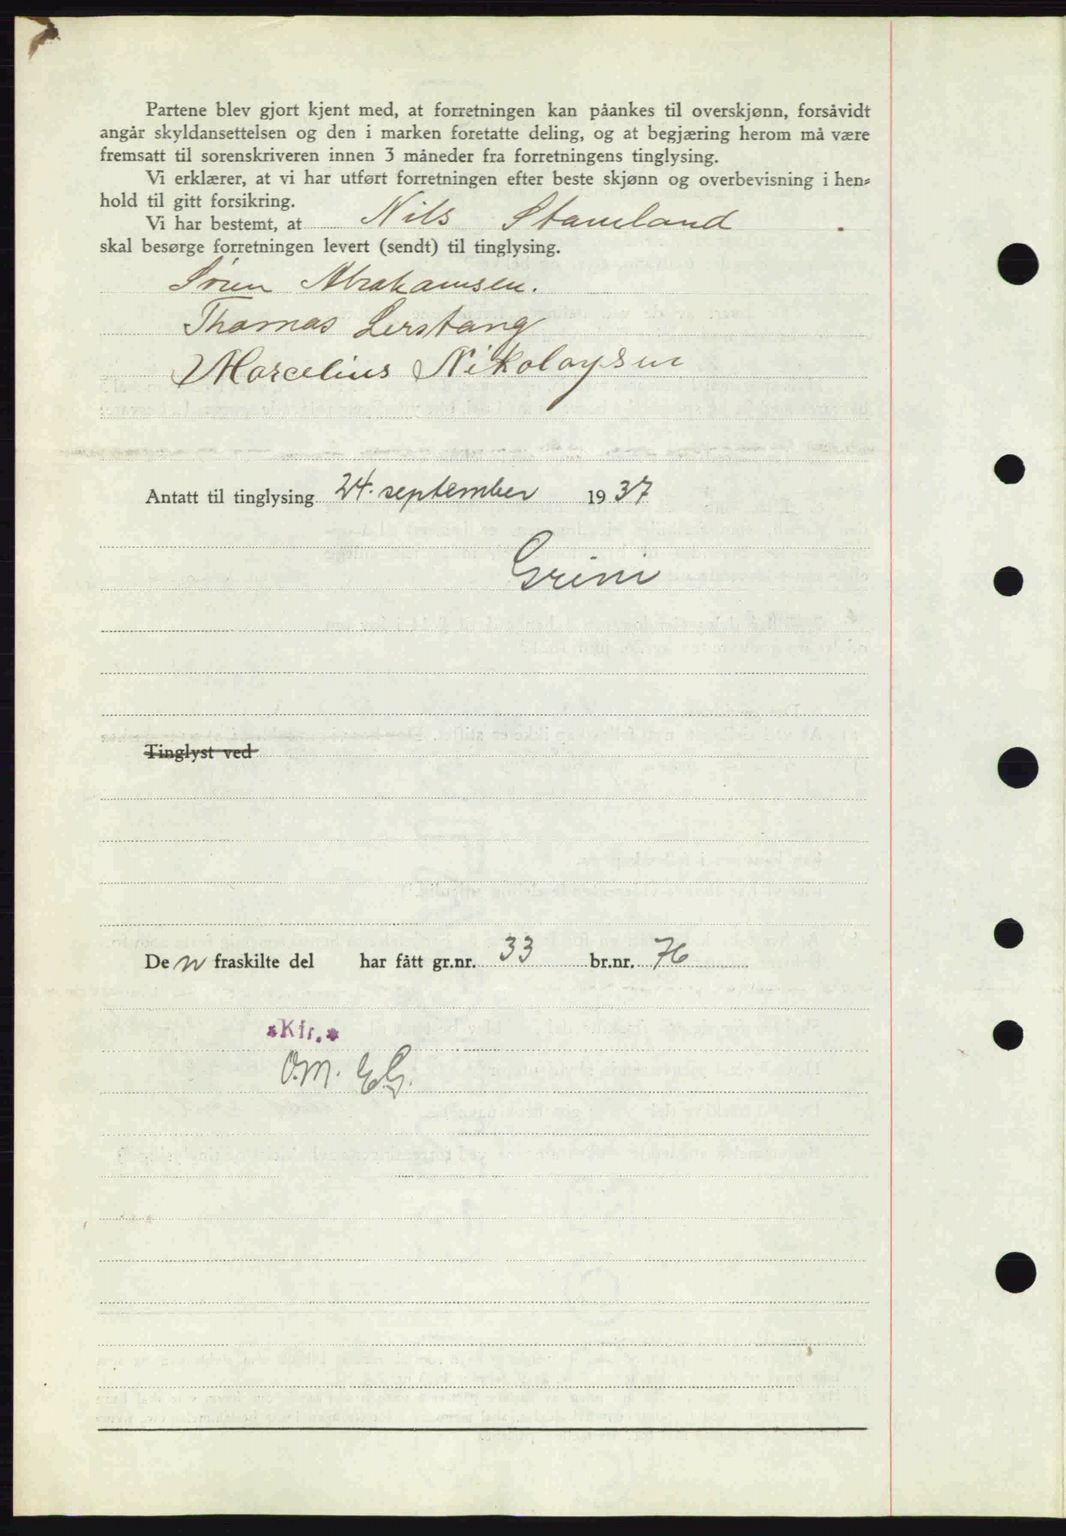 Partene blev gjort kjent med, at forretningen kan påankes til overskjønn, forsåvidt
angår skyldansettelsen og den i marken foretatte deling, og at begjæring herom må være
fremsatt til sorenskriveren innen 3 måneder fra forretningens tinglysing.
Vi erklærer, at vi har utført forretningen efter beste skjønn og overbevisning i hen-
hold til gitt forsikring.
Vi har bestemt, at Nils Stamland
skal besørge forretningen levert (sendt) til tinglysing.
Sören Abrahamsen.
Thomas Lerstang
Marcelius Nikolaysen
Antatt til tinglysing 24. september 1937
Grini
Tinglyst ved
De n fraskilte del har fått gr.nr. 33 br.nr. 76
*Kfr.*
O.M. E.G.